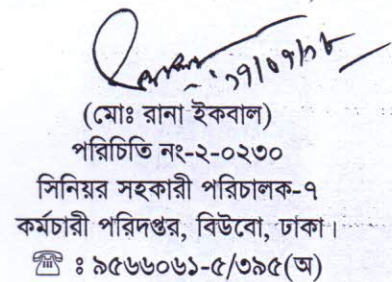 (মোঃ রানা ইকবাল)
পরিচিতি নং-২-০২৩০
সিনিয়র সহকারী পরিচালক-৭
কর্মচারী পরিদপ্তর, বিউবো, ঢাকা।
☎ ঃ ৯৫৬৬০৬১-৫/৩৯৫(অ)